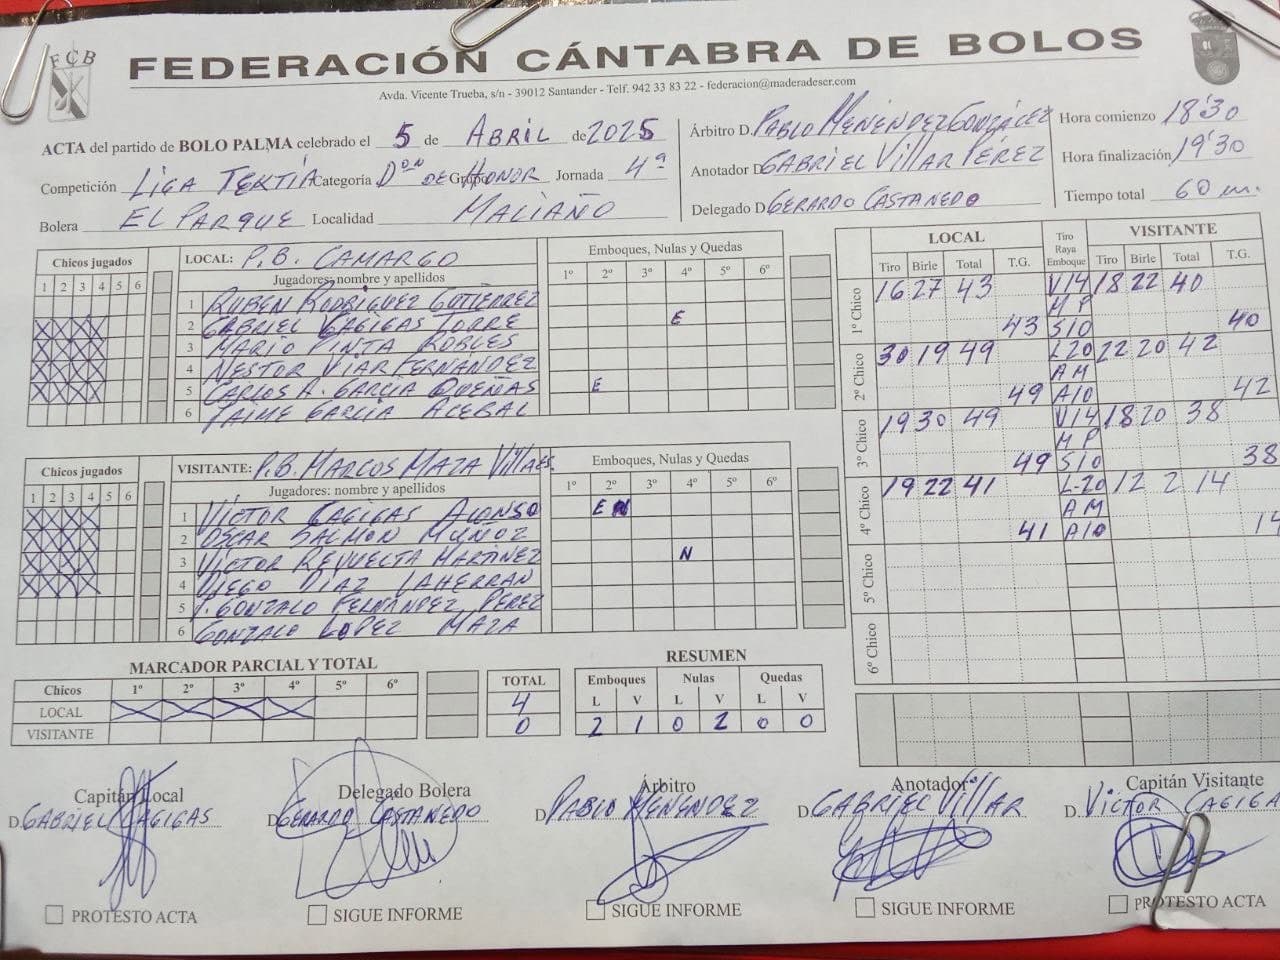 FCB
FEDERACIÓN CÁNTABRA DE BOLOS
Avda. Vicente Trueba, s/n - 39012 Santander - Telf. 942 33 83 22 - federacion@maderadeser.com
ACTA del partido de BOLO PALMA celebrado el 5 de ABRIL de 2025
Competición LIGA TEXTIA Categoría Dón DE HONOR Grupo Jornada 4ª
Bolera EL PARQUE Localidad MALIAÑO
Árbitro D. PABLO MENÉNDEZ GONZÁLEZ
Anotador D. GABRIEL VILLAR PÉREZ
Delegado D. GERARDO CASTANEDO
Hora comienzo 18'30
Hora finalización 19'30
Tiempo total 60 m.
Chicos jugados
1 2 3 4 5 6
LOCAL: P.B. CAMARGO
Jugadores: nombre y apellidos
Emboques, Nulas y Quedas
1º 2º 3º 4º 5º 6º
1 RUBEN RODRÍGUEZ GUTIÉRREZ
2 GABRIEL CAGIGAS TORRE E
3 MARIO PINTA ROBLES
4 NESTOR VIAR FERNÁNDEZ
5 CARLOS A. GARCÍA DUEÑAS E
6 JAIME GARCÍA ACEBAL
Chicos jugados
1 2 3 4 5 6
VISITANTE: P.B. MARCOS MAZA VILLAES.
Jugadores: nombre y apellidos
Emboques, Nulas y Quedas
1º 2º 3º 4º 5º 6º
1 VÍCTOR CAGIGAS ALONSO E N
2 OSCAR SALMON MUÑOZ
3 VÍCTOR REVUELTA MARTINEZ N
4 DIEGO DÍAZ LAHERRAN
5 J. GONZALO FERNÁNDEZ PÉREZ
6 GONZALO LOPEZ MAZA
LOCAL Tiro Raya Emboque VISITANTE
Tiro Birle Total T.G. Tiro Birle Total T.G.
1º Chico 16 27 43 V14 18 22 40
MP
43 S10 40
2º Chico 30 19 49 L-20 22 20 42
AM
49 A10 42
3º Chico 19 30 49 V14 18 20 38
MP
49 S10 38
4º Chico 19 22 41 L-20 12 2 14
AM
41 A10 14
5º Chico
6º Chico
MARCADOR PARCIAL Y TOTAL
Chicos 1º 2º 3º 4º 5º 6º TOTAL
LOCAL 4
VISITANTE 0
RESUMEN
Emboques Nulas Quedas
L V L V L V
2 1 0 2 0 0
Capitán Local
D. GABRIEL CAGIGAS
Delegado Bolera
D. GERARDO CASTANEDO
Árbitro
D. PABLO MENÉNDEZ
Anotador
D. GABRIEL VILLAR
Capitán Visitante
D. VÍCTOR CAGIGA
PROTESTO ACTA
SIGUE INFORME
SIGUE INFORME
SIGUE INFORME
PROTESTO ACTA